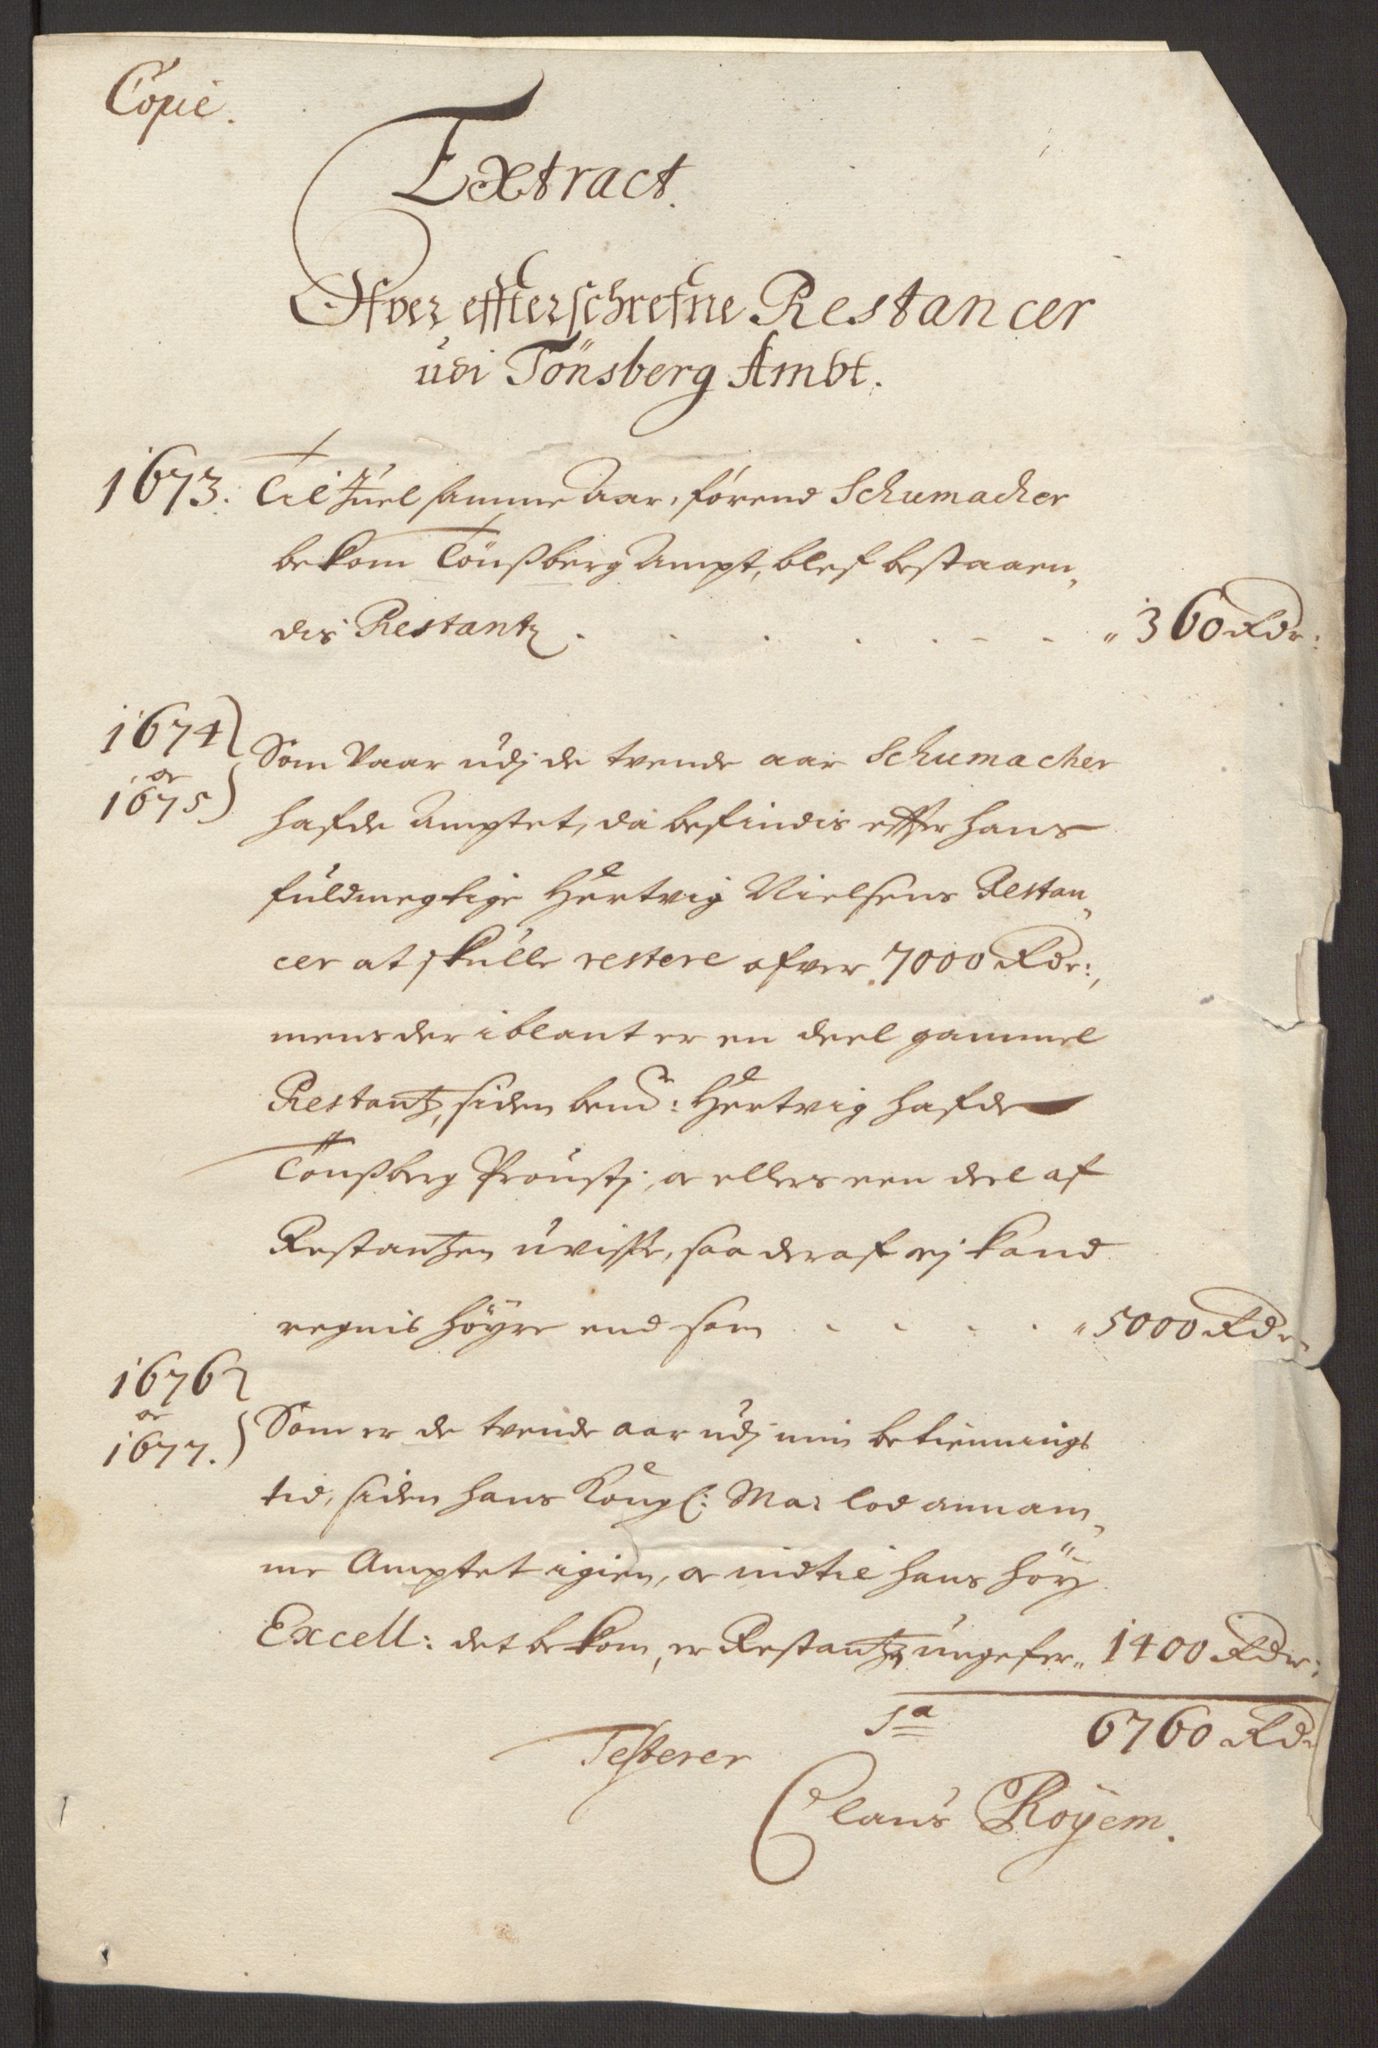 Copie.
Extract.
Ofver effterschrefne Restancer
udi Tönsberg Ambt.
1673. Til Juel samme Aar, førend Schumacher
bekom Tönßberg Ampt, blef bestaaen,
dis Restantz . . . . . . . „ 360 Rdr:
1674
oc
1675
Som Vaar udj de tvende aar Schumacher
hafde Amptet, da befindis effter hans
fuldmegtige Hertvig Nielsens Restan,
cer at skulle restere ofver 7000 Rdr:,
mens der iblant er en deel gammel
Restantz, siden bemd: Hertvig hafde
Tönßberg Proustj, oc ellers een deel af
Restantzen uvisse, saa deraf ej kand
regnis høyre end som . . . . „ 5000 Rdr
1676
oc
1677.
Som er de tvende aar udj min betiennings
tid, siden hans Kongl: Ma: lod annam,
me Amptet igien, oc indtil hans höy
Excell: det bekom, er Restantz ungefer „ 1400 Rdr:
Sa 6760 Rdr
Testerer
Claus Röyem.